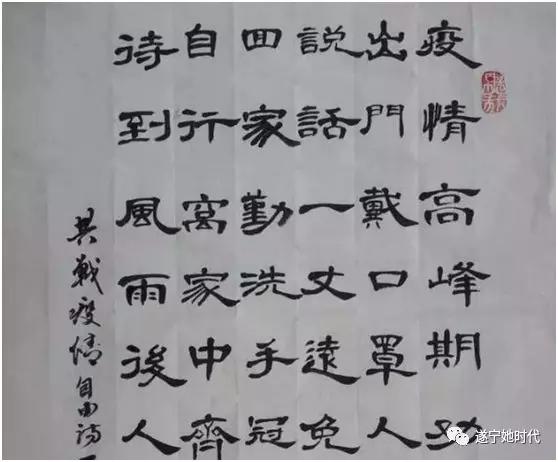 疫情高峰期
出門戴口罩人
説話一丈遠免
囬家勤洗手冠
自行窩家中齊
待到風雨後人
共戰疫情自由詩
遂宁她时代